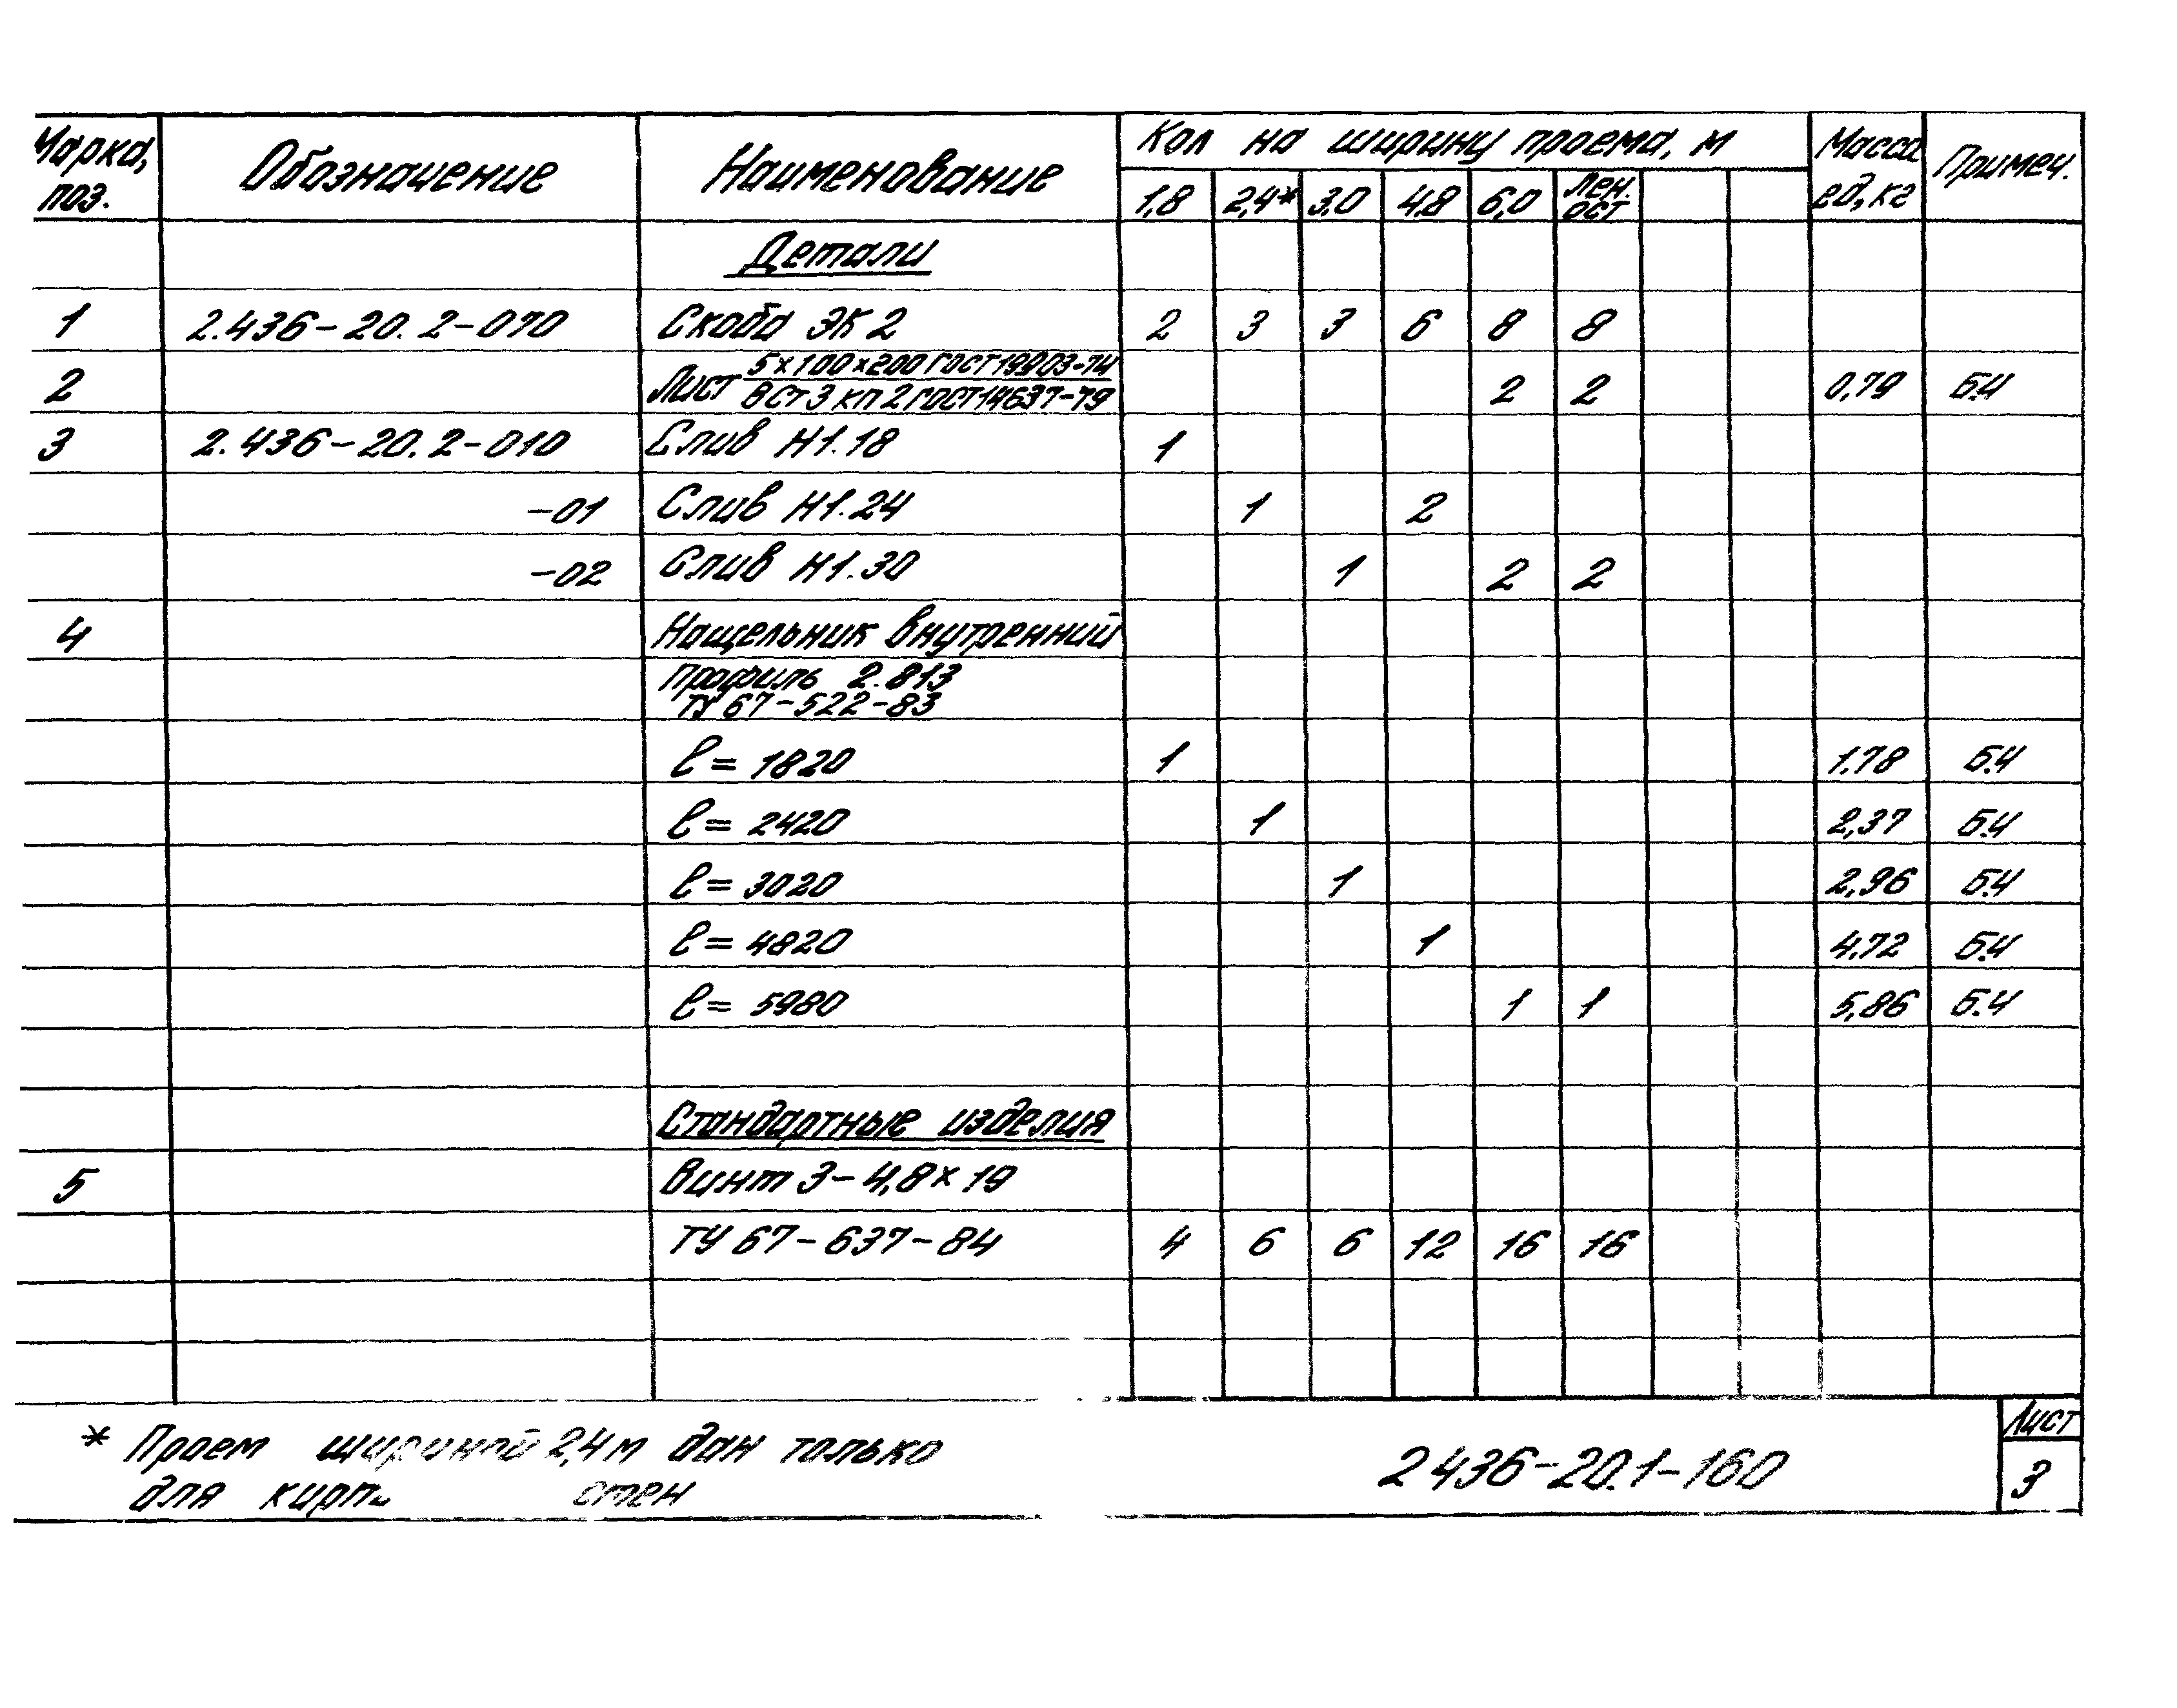 Марка, поз. Обозначение Наименование Кол на ширину проема, м Масса ед, кг Примеч.
1,8 2,4* 3,0 4,8 6,0 лен. ост
Детали
1 2.436-20.2-070 Скоба ЭК 2 2 3 3 6 8 8
2 Лист 5×100×200 ГОСТ 19903-74 2 2 0,79 Б.Ч
ВСт3 кп 2 ГОСТ 14637-79
3 2.436-20.2-010 Слив Н1.18 1
-01 Слив Н1.24 1 2
-02 Слив Н1.30 1 2 2
4 Нащельник внутренний
Профиль 2.813
ТУ 67-522-83
ℓ= 1820 1 1.78 Б.Ч
ℓ= 2420 1 2,37 Б.Ч
ℓ= 3020 1 2,96 Б.Ч
ℓ= 4820 1 4.72 Б.Ч
ℓ= 5980 1 1 5,86 Б.Ч
Стандартные изделия
5 Винт 3-4,8×19
ТУ 67-637-84 4 6 6 12 16 16
* Проем шириной 2,4м дан только
для стен
2 436-20.1-160
Лист
3